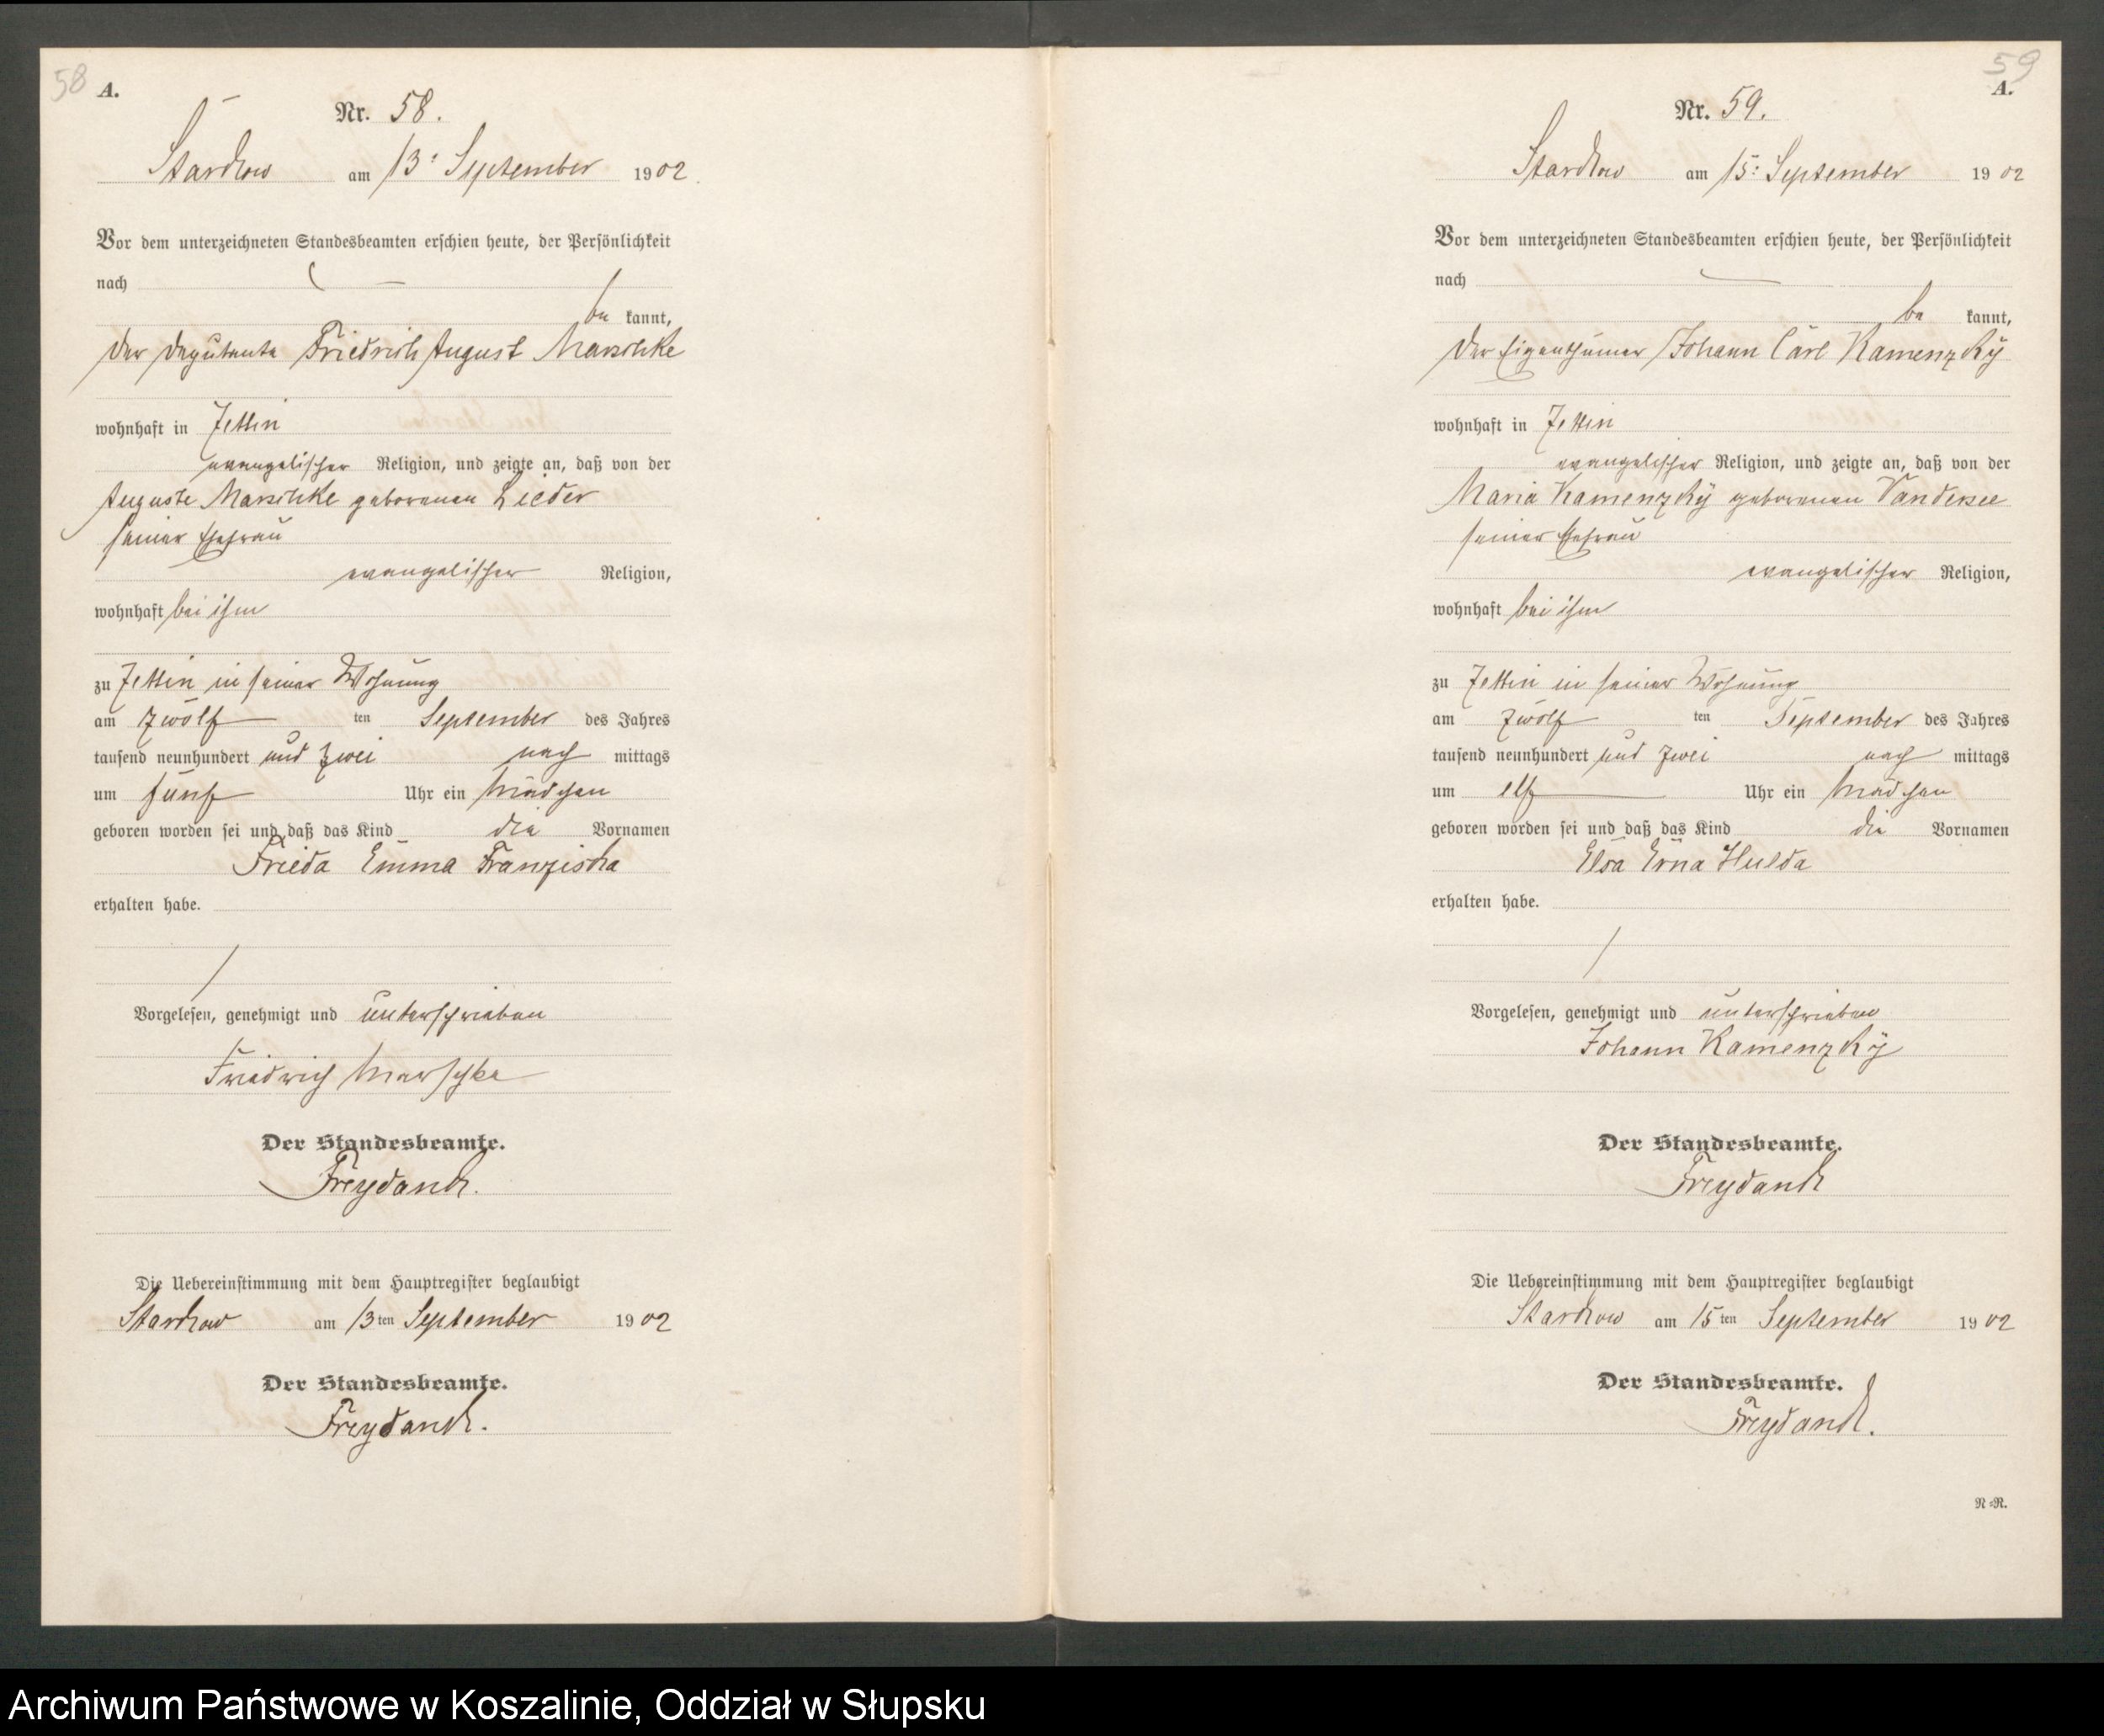 58
A.
Nr. 58.
Starckow am 13: September 1902
Vor dem unterzeichneten Standesbeamten erschien heute, der Persönlichkeit
nach
be kannt,
der Deputante Friedrich August Marschke
wohnhaft in Zettin
evangelischer Religion, und zeigte an, daß von der
Auguste Marschke geborenen Lieder
seiner Ehefrau
evangelischer Religion,
wohnhaft bei ihm
zu Zettin in seiner Wohnung
am zwölf ten September des Jahres
tausend neunhundert und zwei nach mittags
um fünf Uhr ein Mädchen
geboren worden sei und daß das Kind die Vornamen
Frieda Emma Franziska
erhalten habe.
Vorgelesen, genehmigt und unterschrieben
Friedrich Marschke
Der Standesbeamte.
Freydanck.
Die Uebereinstimmung mit dem Hauptregister beglaubigt
Starckow am 13ten September 1902
Der Standesbeamte.
Freydanck.
59
A.
Nr. 59.
Starckow am 15: September 1902
Vor dem unterzeichneten Standesbeamten erschien heute, der Persönlichkeit
nach
be kannt,
der Eigenthümer Johann Carl Kamenzky
wohnhaft in Zettin
evangelischer Religion, und zeigte an, daß von der
Maria Kamenzky geborenen Vandersee
seiner Ehefrau
evangelischer Religion,
wohnhaft bei ihm
zu Zettin in seiner Wohnung
am zwölf ten September des Jahres
tausend neunhundert und zwei nach mittags
um elf Uhr ein Mädchen
geboren worden sei und daß das Kind die Vornamen
Elsa Erna Hulda
erhalten habe.
Vorgelesen, genehmigt und unterschrieben
Johann Kamenzky
Der Standesbeamte.
Freydanck
Die Uebereinstimmung mit dem Hauptregister beglaubigt
Starckow am 15ten September 1902
Der Standesbeamte.
Freydanck.
N=R.
Archiwum Państwowe w Koszalinie, Oddział w Słupsku